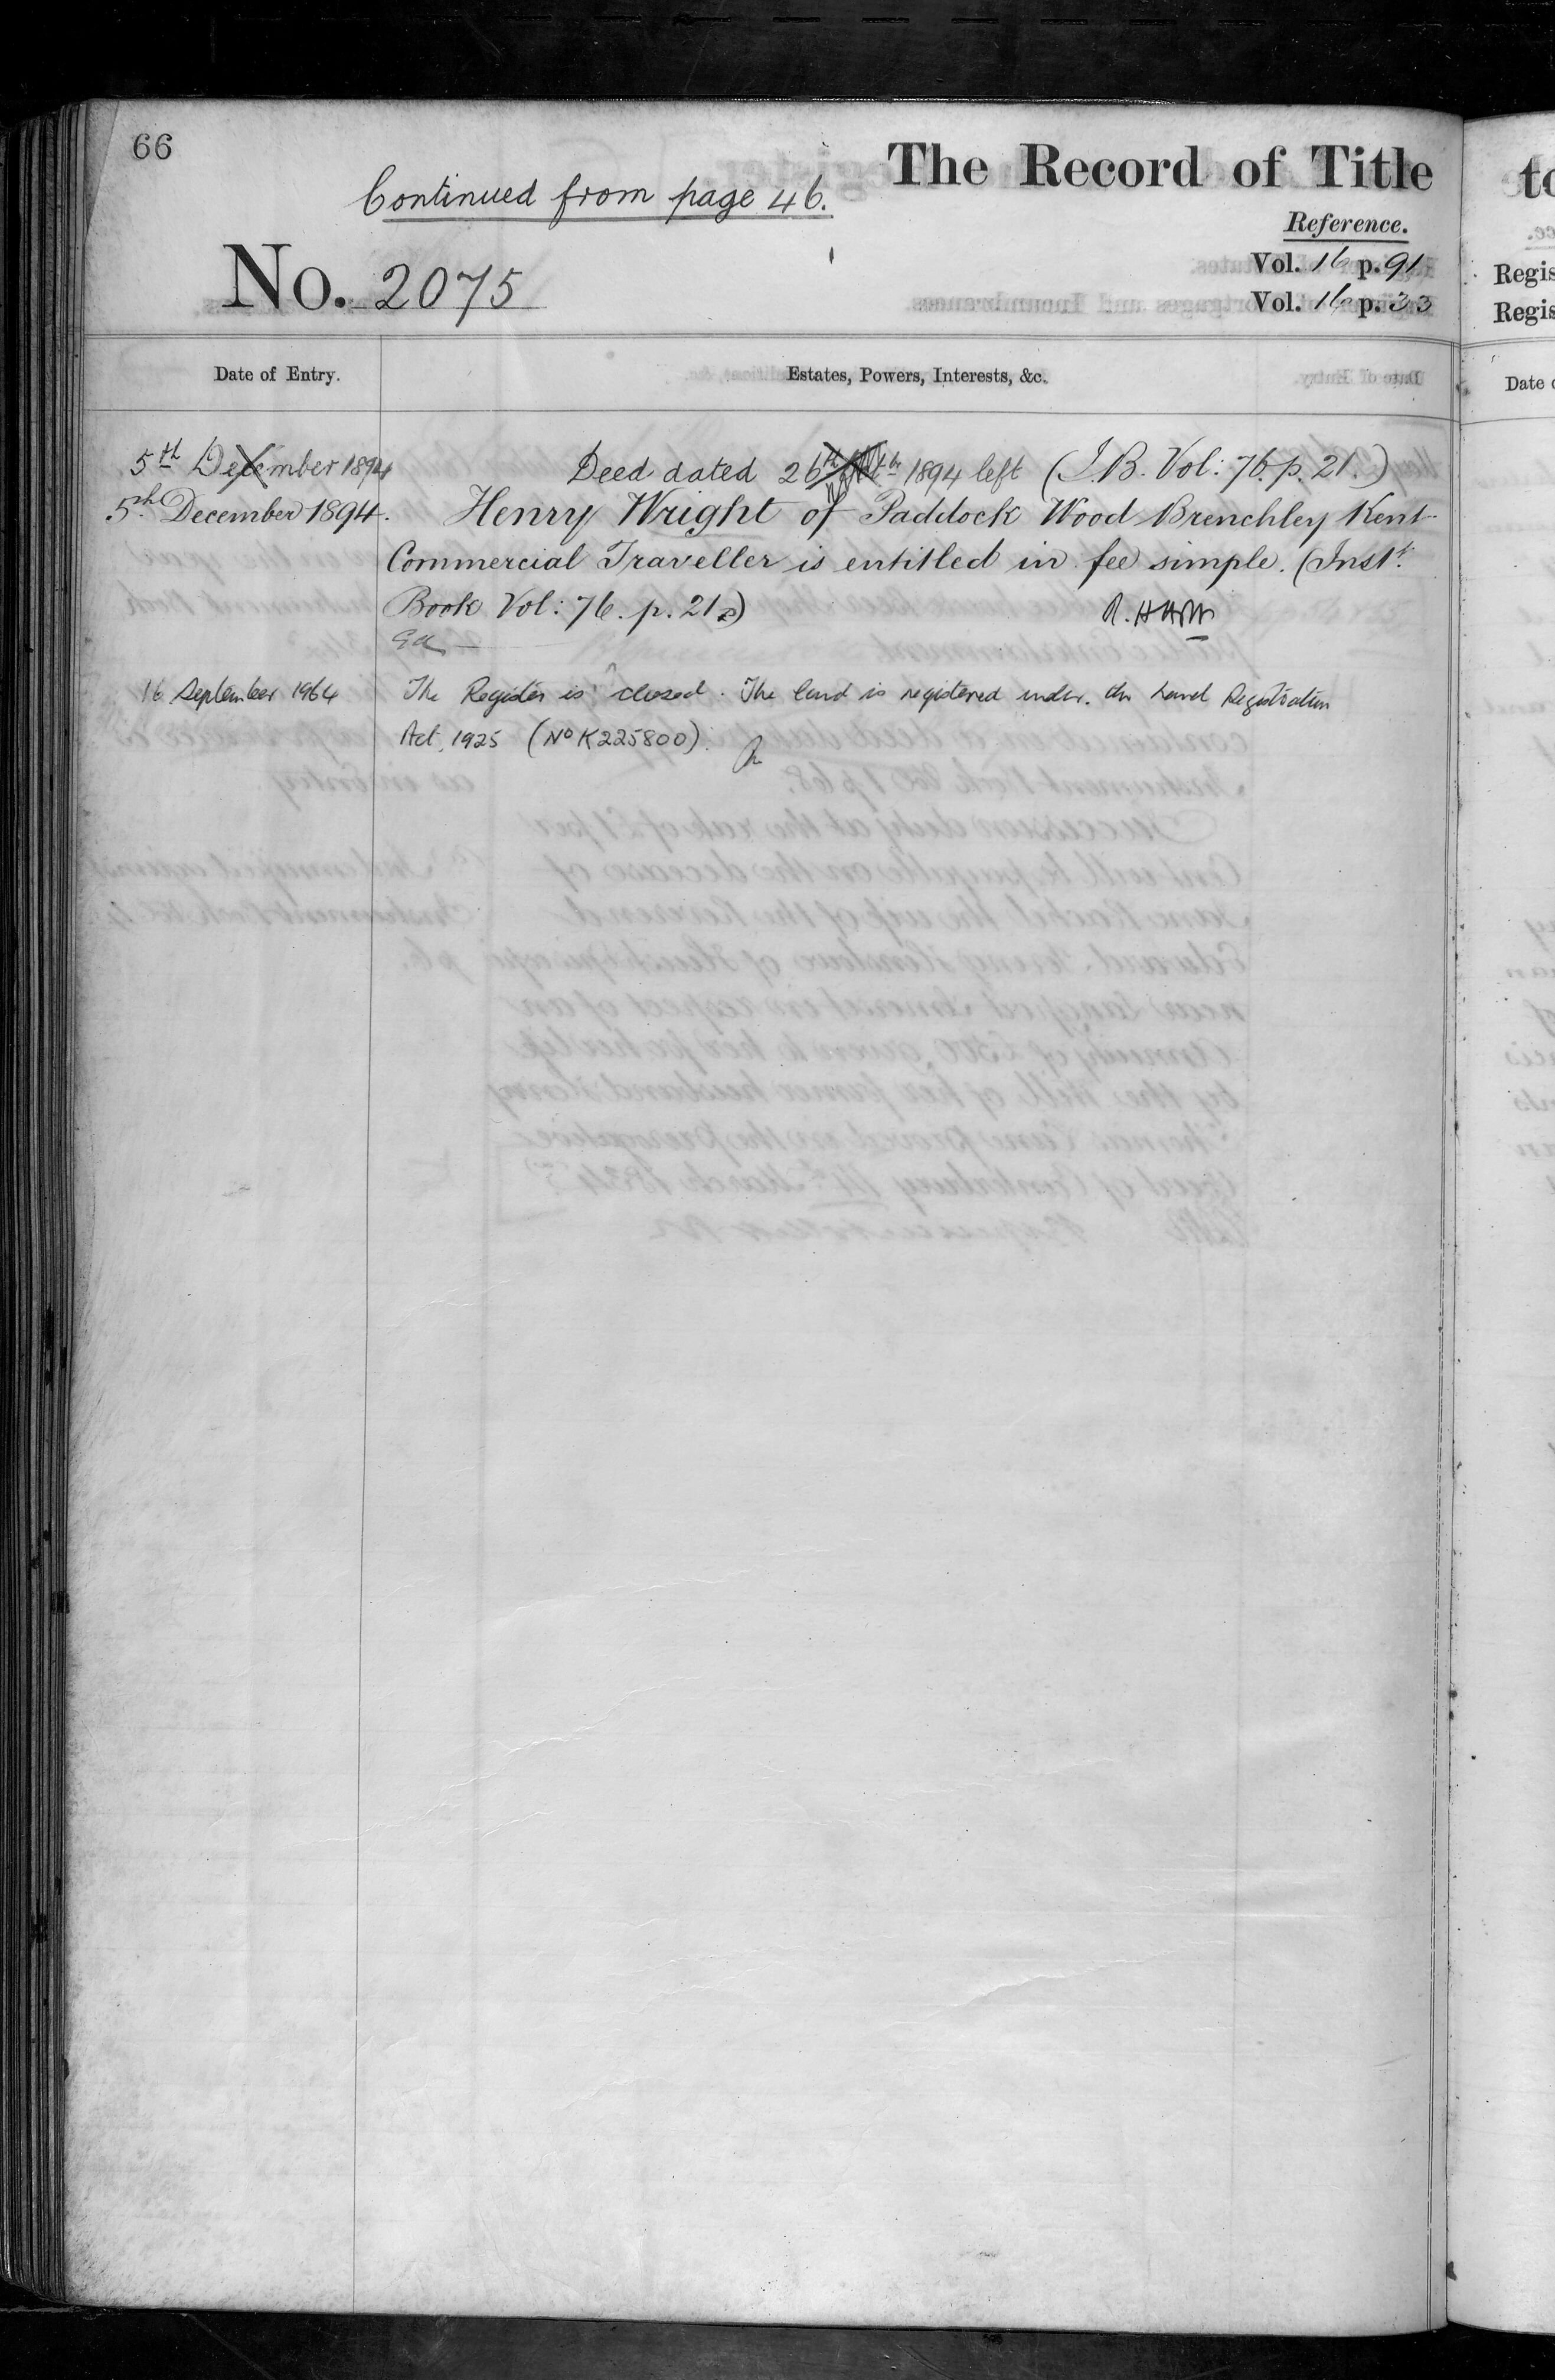 66
The Record of Title
Continued from page 46.
Reference.
No. 2075
Vol. 16 p. 91
Vol. 16 p. 33
Date of Entry.
Estates, Powers, Interests, &c.
5th December 1894
Deed dated 26th 1894 left (I.B. Vol: 76. p. 21.)
5th December 1894.
Henry Wright of Paddock Wood Brenchley Kent
Commercial Traveller is entitled in fee simple. (Instt.
Book Vol: 76. p. 21.)
16 September 1964
The Register is closed. The land is registered under the Land Registration
Act, 1925 (No K225800).
to
Regis
Regis
Date